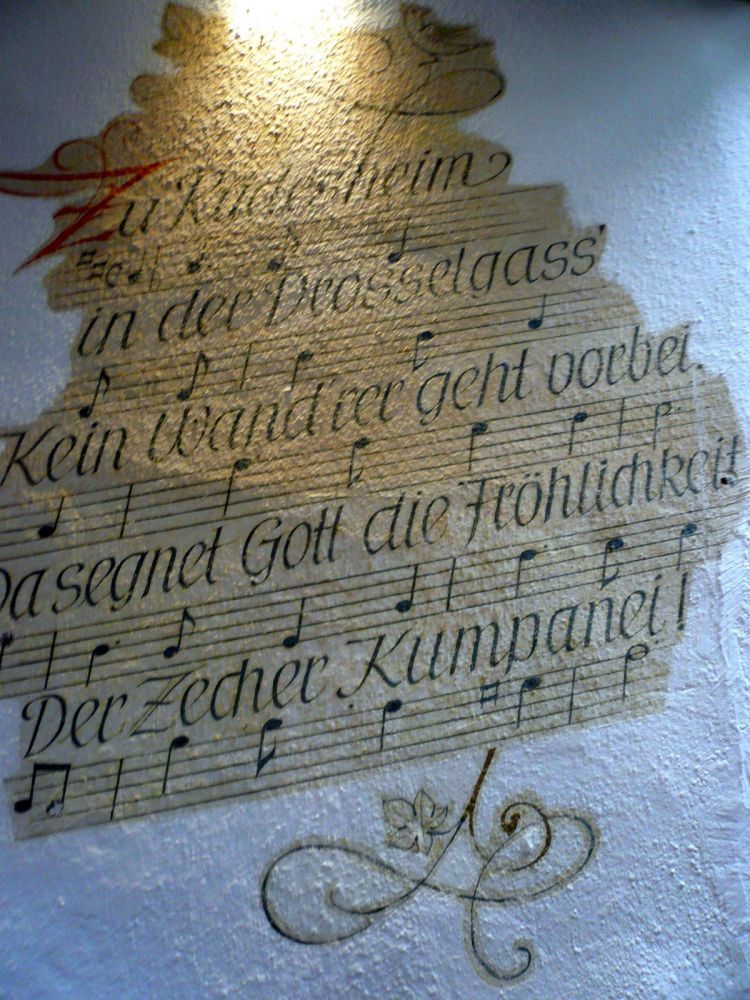 Zu Rüdesheim
in der Drosselgass'
Kein Wand'rer geht vorbei.
Da segnet Gott die Fröhlichkeit
Der Zecher Kumpanei!